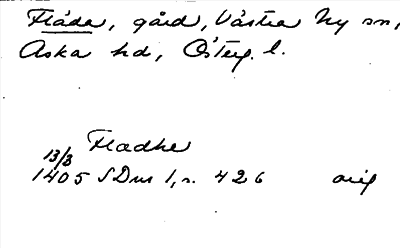 Fláda, gård, Västra Ny sn,
Aska hd, Österg. l.
Fladhe
13/8
1405 SDns 1, s. 426 orig